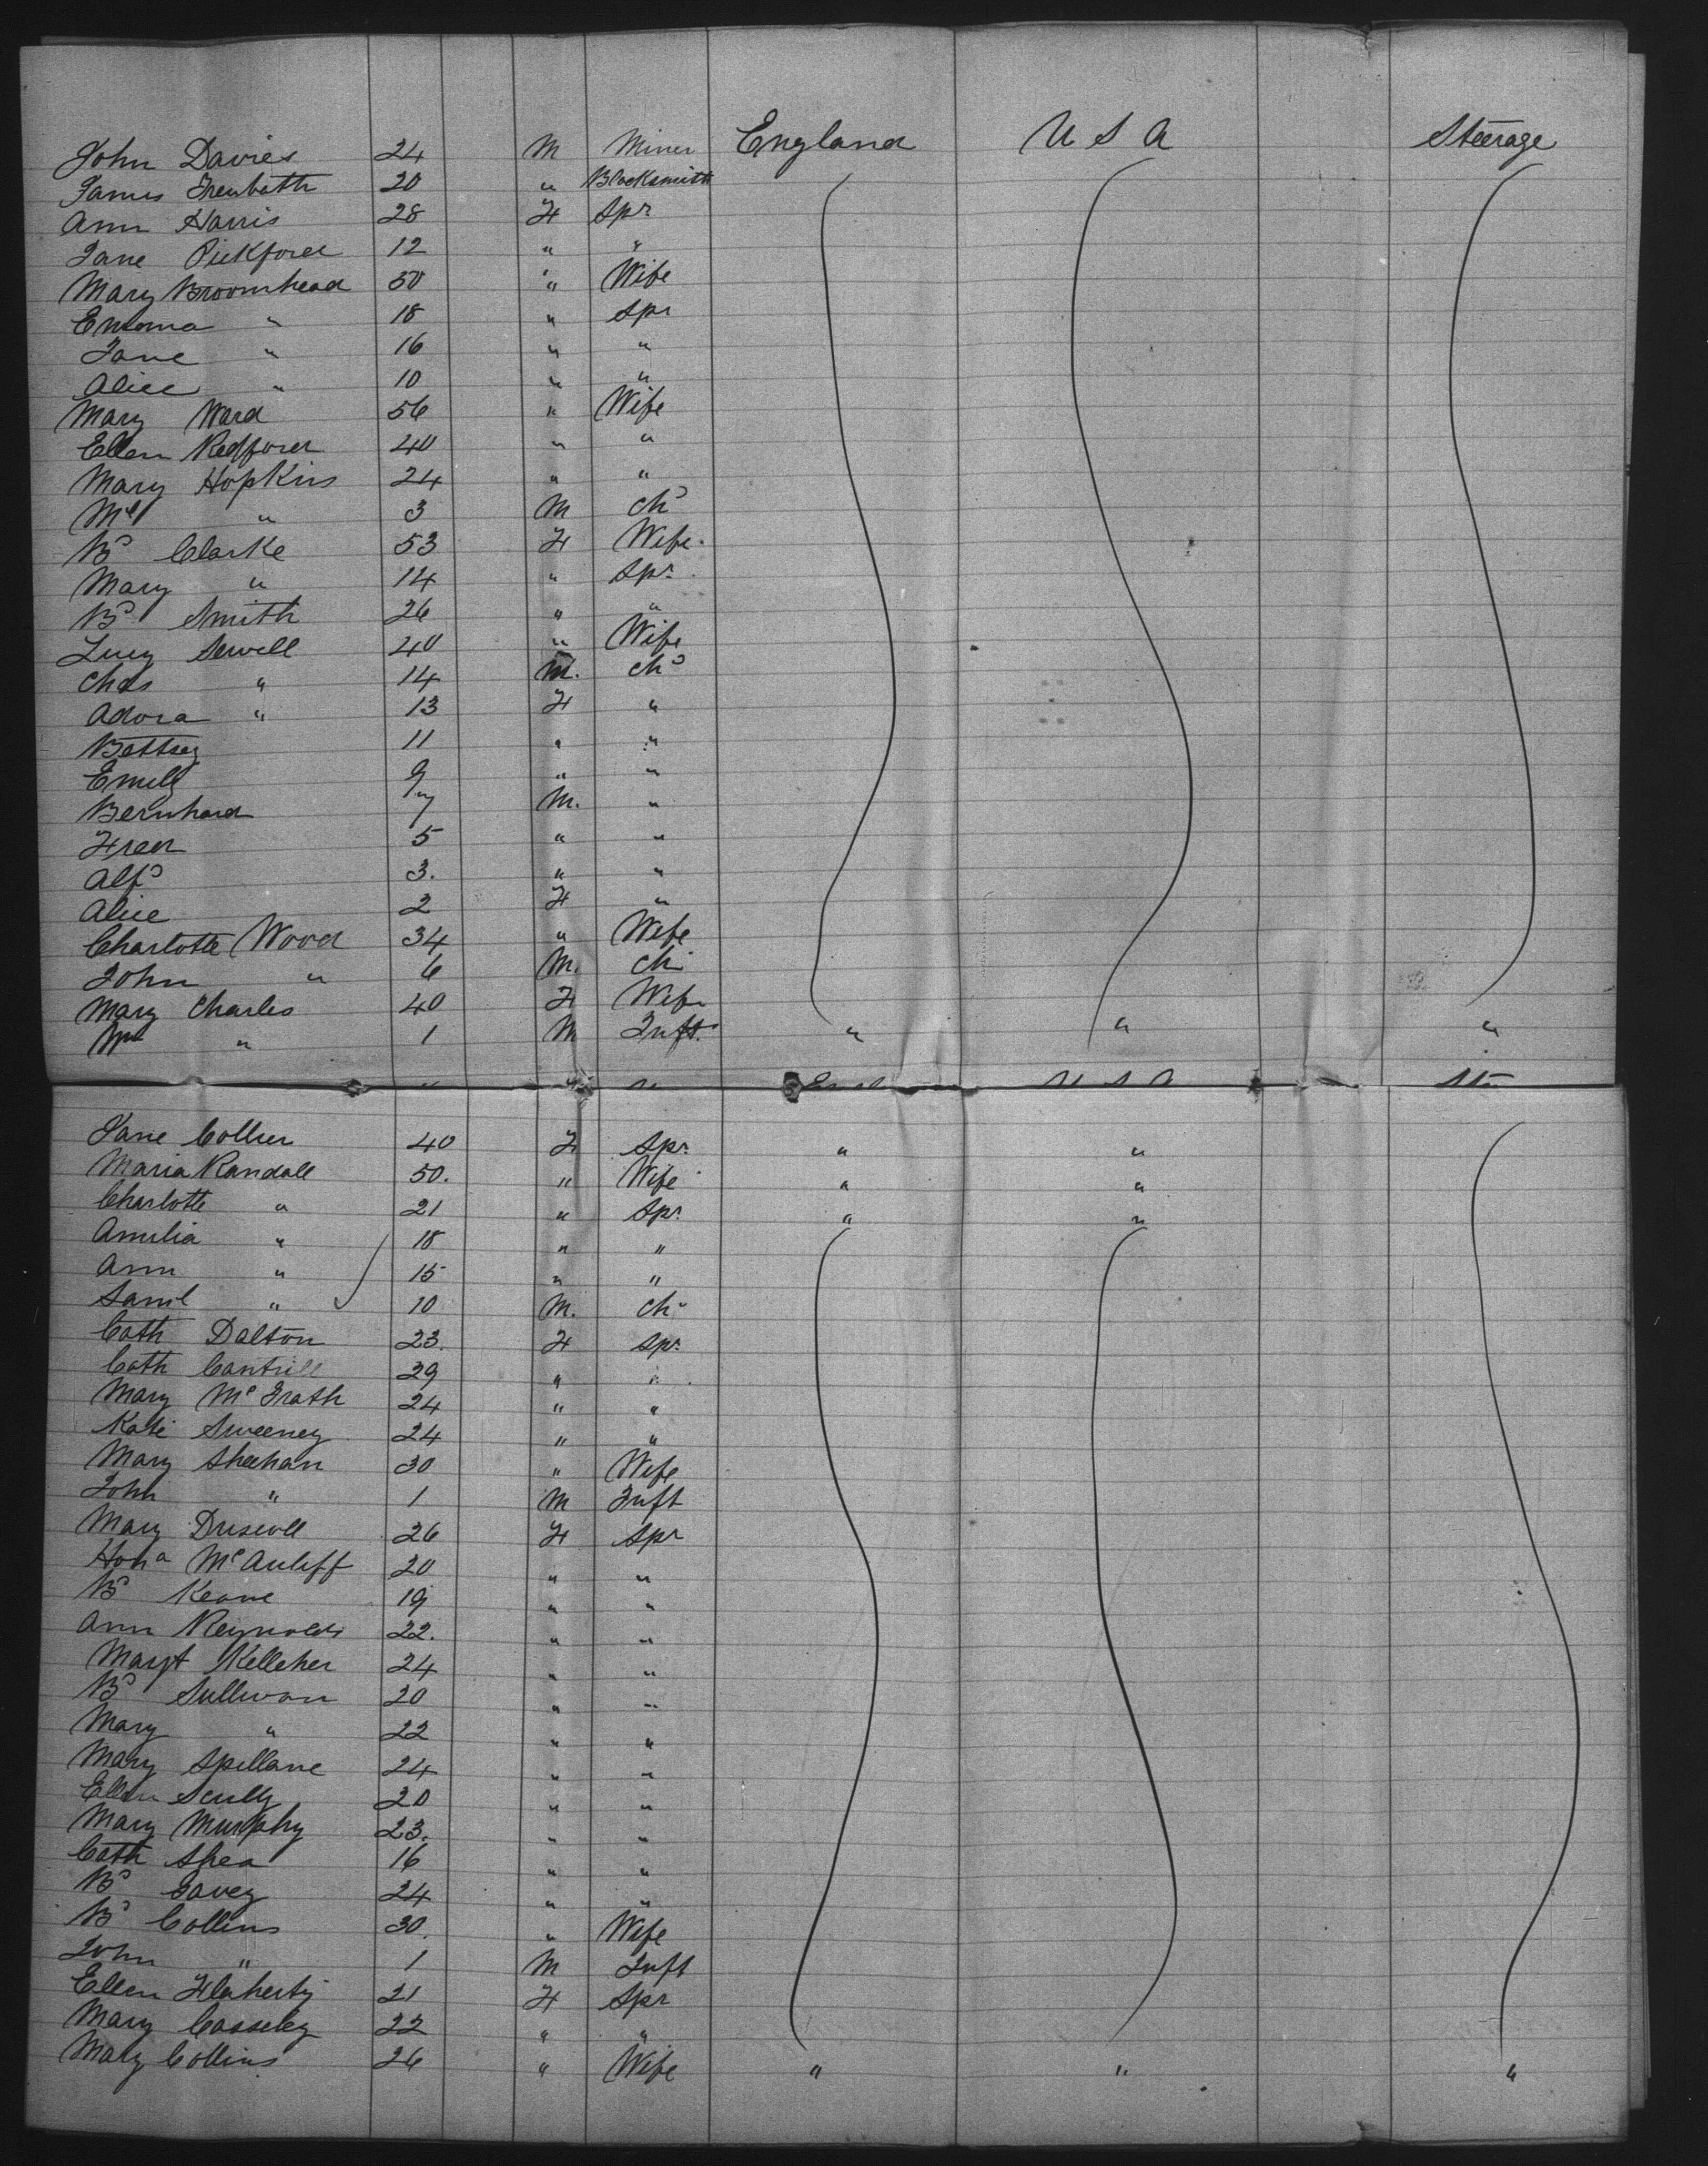 John Davies 24 M Miner England U S A Steerage
James Trenbath 20 " Blacksmith
Ann Harris 28 F Spr
Jane Pickford 12 " "
Mary Broomhead 50 " Wife
Emma " 18 " Spr
Jane " 16 " "
Alice " 10 " "
Mary Ward 56 " Wife
Ellen Redford 40 " "
Mary Hopkins 24 " "
" 3 M Chd
Bt Clarke 53 F Wife
Mary " 14 " Spr
Bt Smith 26 " "
Lucy Sewell 40 " Wife
Chas " 14 M. Chd
Adora " 13 F "
Bettsey 11 " "
Emily 9 " "
Bernhard 7 M. "
Fred 5 " "
Alfd 3. " "
Alice 2 F "
Charlotte Wood 34 " Wife
John " 6 M. Chd
Mary Charles 40 F Wife
Wm " 1 M Inft. " " "
Jane Collier 40 F Spr. " "
Maria Randall 50. " Wife " "
Charlotte " 21 " Spr. " "
Amelia " 18 " "
Ann " 15 " "
Saml " 10 M. Chd
Cath Dalton 23. F Spr.
Cath Cantrill 29 " "
Mary McGrath 24 " "
Kate Sweeney 24 " "
Mary Sheehan 30 " Wife
John " 1 M Inft
Mary Driscoll 26 F Spr
Hona McAuliff 20 " "
Bt Keane 19 " "
Ann Reynolds 22. " "
Margt Kelleher 24 " "
Bt Sullivan 20 " "
Mary " 22 " "
Mary Spillane 24 " "
Ellen Scully 20 " "
Mary Murphy 23. " "
Cath Shea 16 " "
Bt 24 " "
Bt Collins 30. " Wife
John " 1 M Inft
Ellen Flaherty 21 F Spr
Mary Casseley 22 " "
Mary Collins 26 " Wife " " "